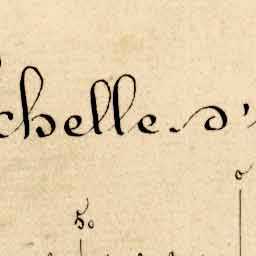 chelle d'
50 0